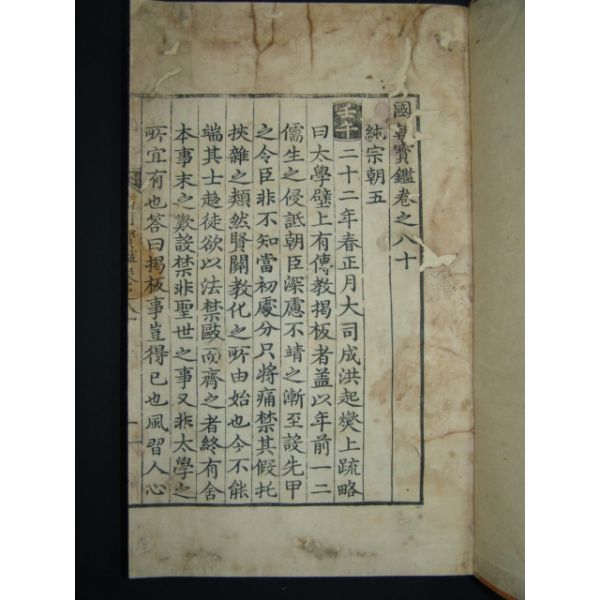 國朝寶鑑卷之八十
純宗朝五
壬午二十二年春正月大司成洪起燮上䟽略
曰太學壁上有傳教揭板者盖以年前一二
儒生之侵詆朝臣深慮不靖之漸至設先甲
之令臣非不知當初處分只將痛禁其假托
挾雜之類然賢關教化之所由始也今不能
端其士趍徒欲以法禁敺而齊之者終有舍
本事末之歎設禁非聖世之事又非太學之
所宜有也答曰揭板事豈得已也風習人心